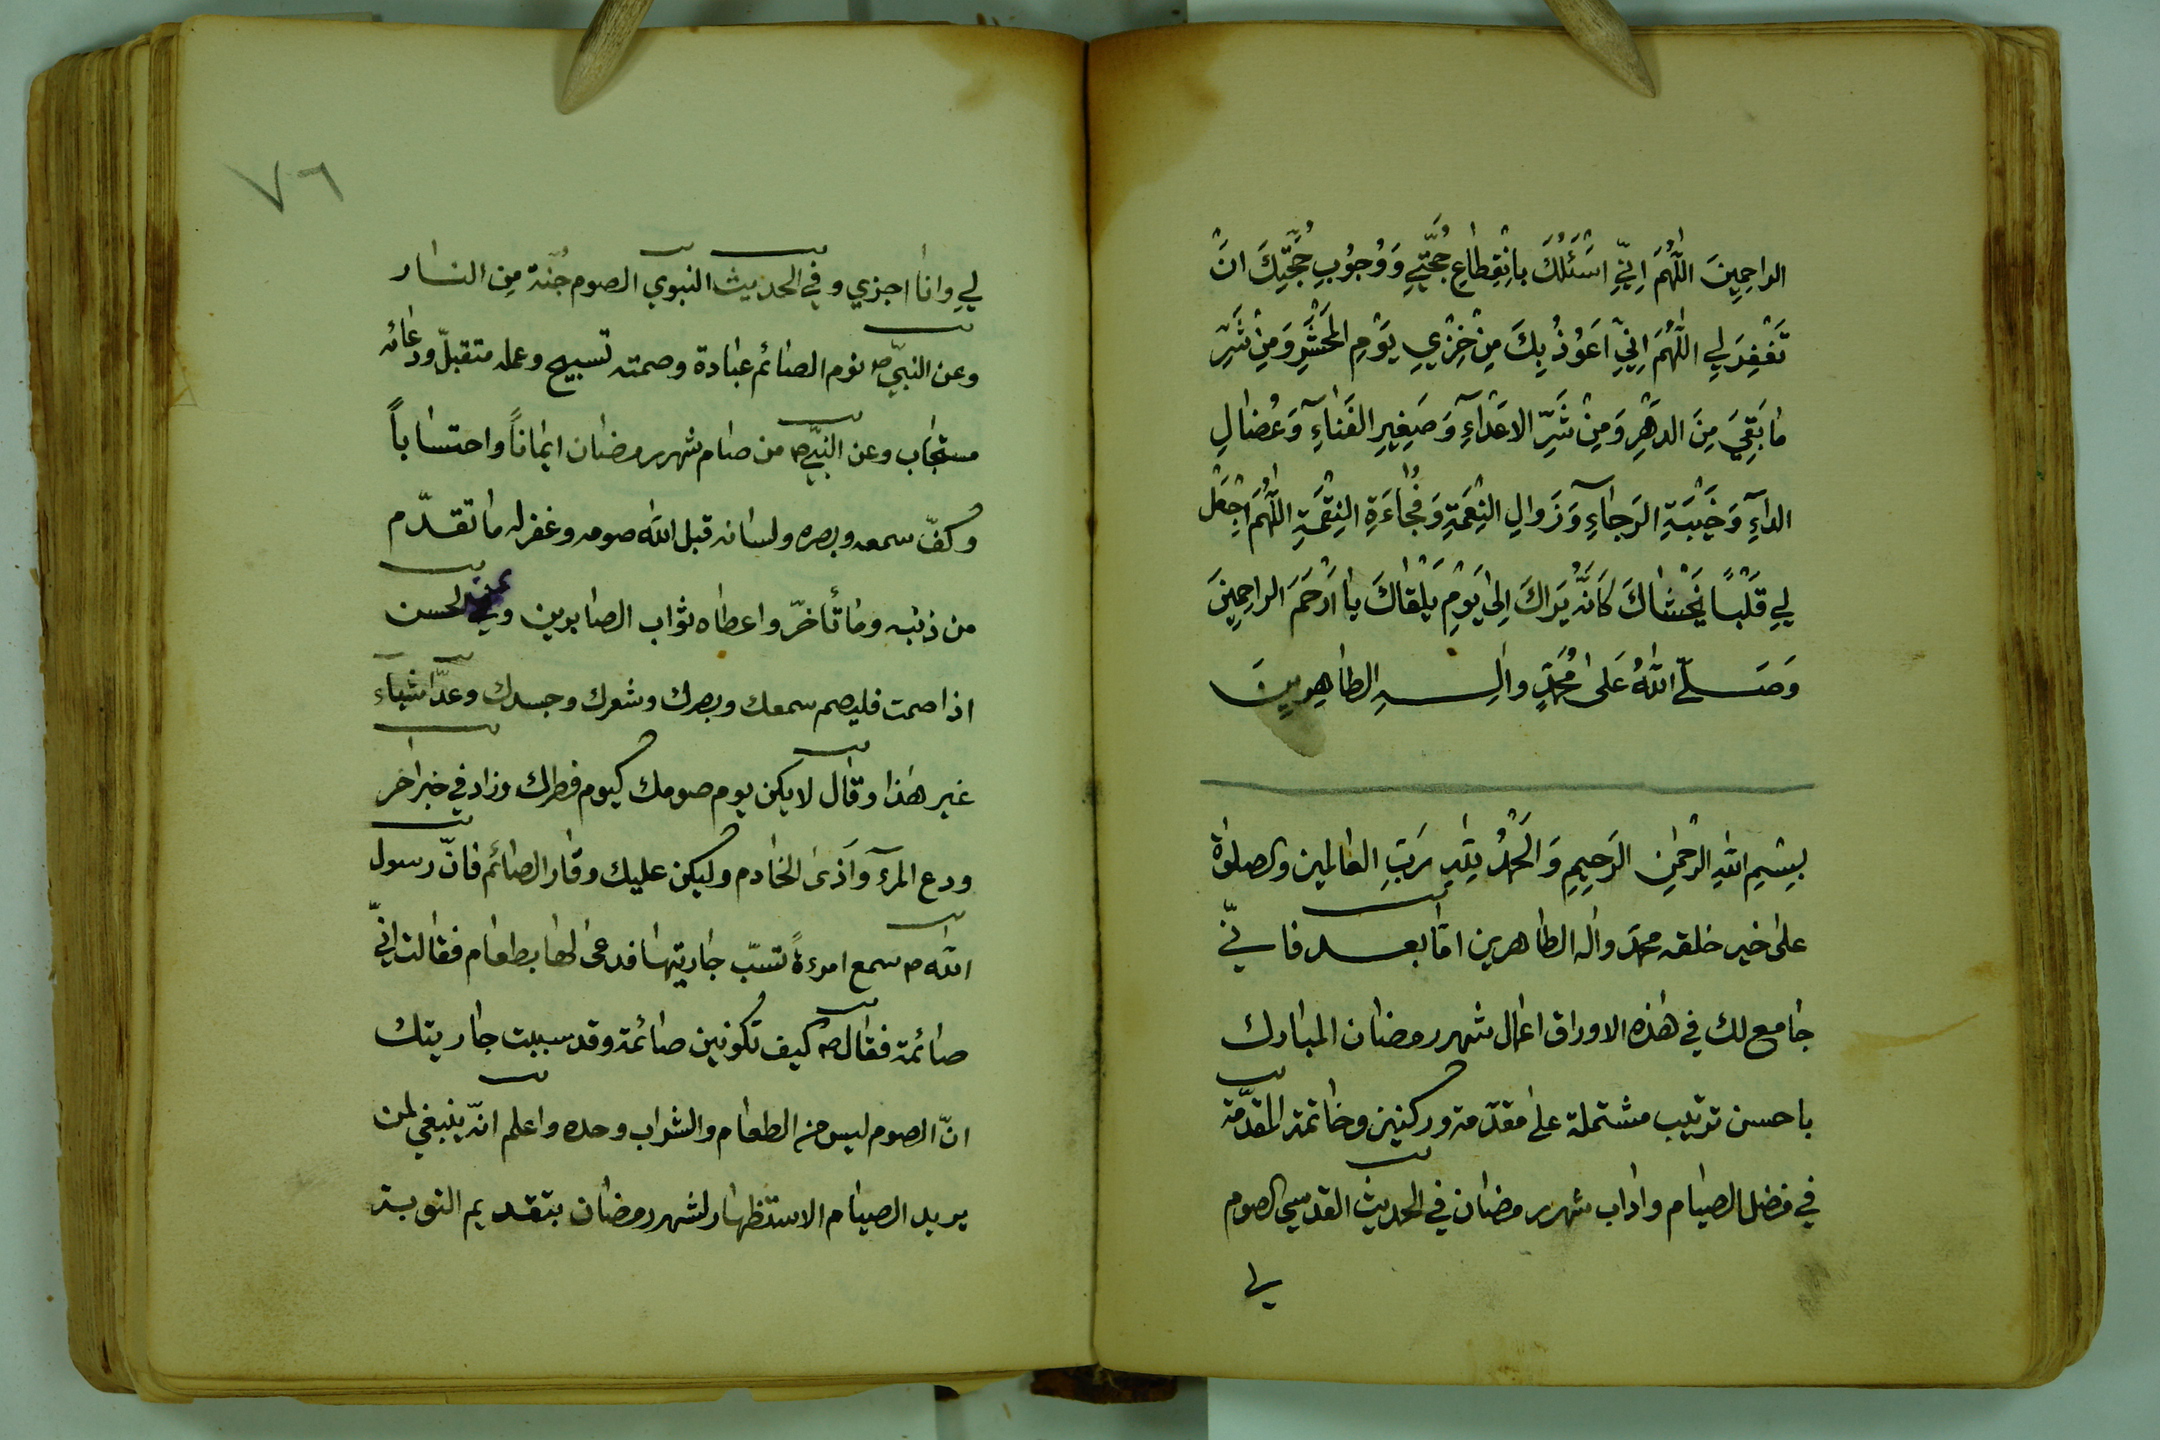 الراحِمِينَ اللّٰهُمَ اِنِّي اسْئَلُكَ بانْقِطاعِ حُجَّتِي وَوُجُوبِ حُجَّتِكَ انْ
تَغْفِرَ لِي اللّٰهُمَ اِنِّي اعَوُذُ بِكَ مِنْ خِزْيِ يَوْمِ المَحْشَرِ وَمِنْ شَرِّ
مٰا بَقِيَ مِنَ الدَهْرِ وَمِنْ شَرِّ الاعْدٰآءِ وَصَغِيرِ الفَنٰآءِ وَعُضٰالِ
الدٰآءِ وَخَيْبَةِ الرَجٰآءِ وَزَوالِ النِعْمَةِ وَفُجٰاءَةِ النِقْمَةِ اللّٰهُمَ اجْعَلْ
لِي قَلْبًا يَخْشٰاكَ كَانَّهُ يَراكَ اِلىٰ يَوْمِ يَلْقٰاكَ يٰا ارْحَمَ الراحِمِينَ
وَصَلّىٰ اللّٰهُ عَلىٰ مُحَمَّدٍ وآلِهِ الطٰاهِرِينَ
بِسْمِ اللّٰهِ الرَحْمٰنِ الرَحِيمِ وَالحَمْدُ لِلّٰهِ رَبِّ العٰالمين والصلوٰة
علىٰ خير خلقه محمّد واله الطاهرين امّا بعد فانّي
جٰامع لك في هٰذه الاوراق اعمٰال شهر رمضٰان المبٰارك
باحسن ترتيب مشتملة علىٰ مقدّمة وركنين وخٰاتمة المقدّمة
في فضل الصيٰام واداب شهر رمضٰان في الحديث القدسي الصوم
لي
٧٦
لي وانٰا اجزي و في الحديث النبوي الصوم جُنّة مِن النٰار
وعن النبّي ص نوم الصٰائم عبٰادة وصمته تسبيح وعمله متقبلّ ودعٰائه
مستجٰاب وعن النبّي ص من صٰام شهر رمضٰان ايمٰاناً واحتسٰاباً
وكفّ سمعه وبصره ولسٰانه قبل اللّٰه صومه وغفر له مٰا تقدّم
من ذنبه ومٰا تأخرّ واعطٰاه ثوٰاب الصٰابرين و الحسن
اذا صمت فليصم سمعك وبصرك وشعرك وجسدك وعدّ اشيٰاء
غير هٰذا وقٰال لا يكن يوم صومك كيوم فطرك وزاد في خبر اخر
ودع المرآء وآذى الخٰادم وليكن عليك وقٰار الصٰائم فانّ رسول
اللّٰه ص سمع امرءةً تسبّ جٰاريتهٰا فدعىٰ لهٰا بطعٰام فقٰالت انّي
صٰائمة فقٰال ص كيف تكونين صٰائمة وقد سببت جٰاريتك
انّ الصوم ليس من الطعٰام والشراب وحده واعلم انّه ينبغي لمن
يريد الصيٰام الاستظهٰار لشهر رمضٰان بتقديم التوبة